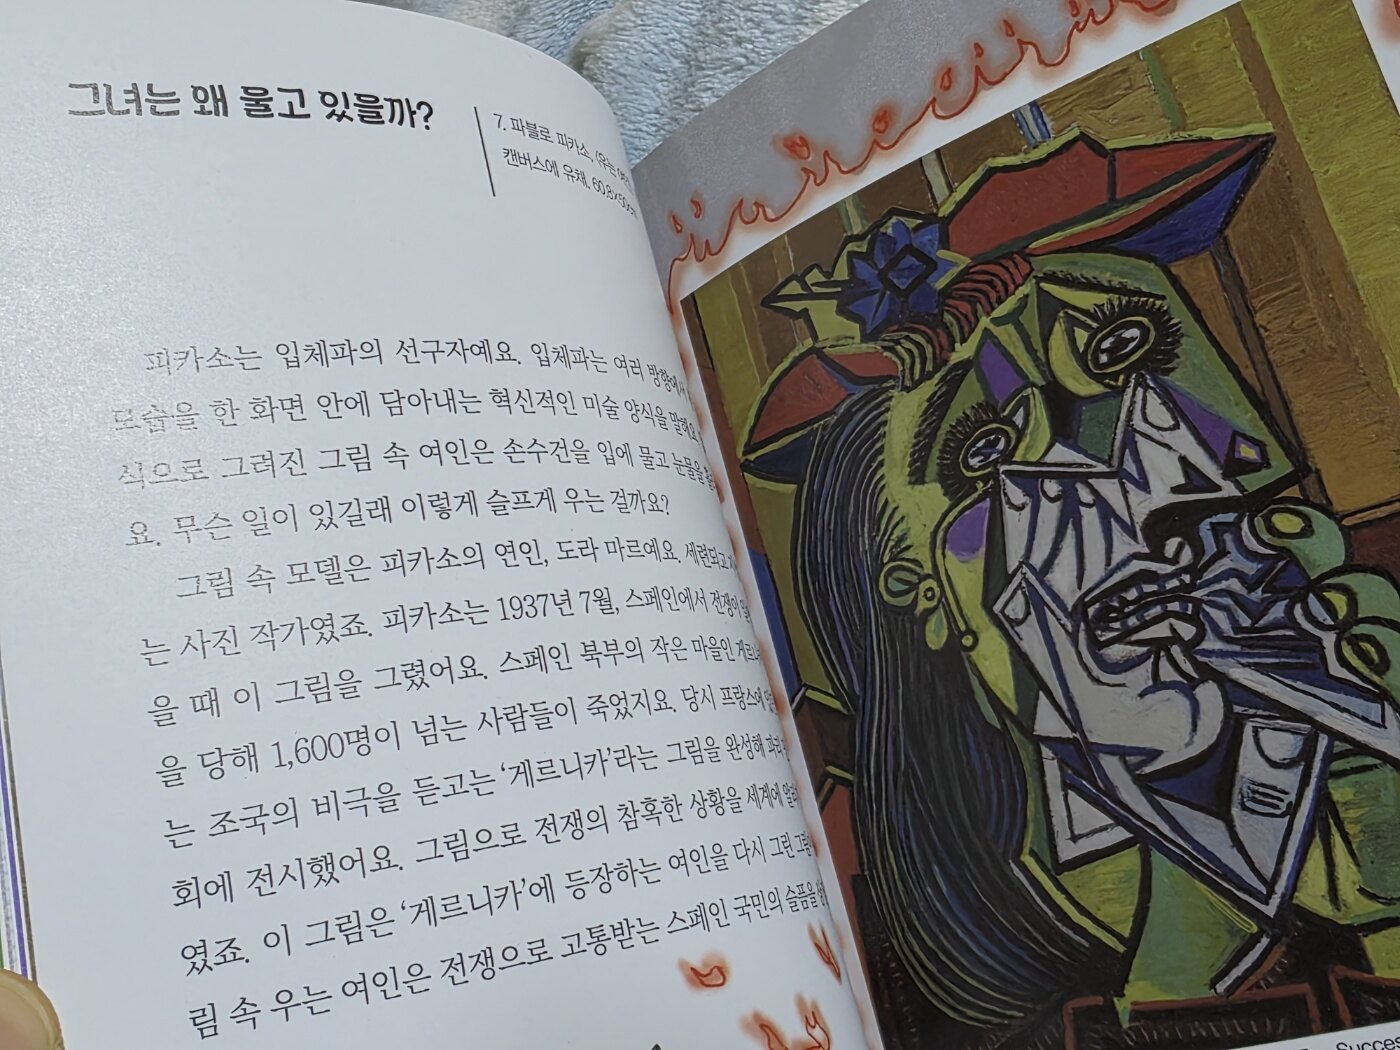 그녀는 왜 물고 있을까?
7. 파블로 피카소, 〈우는 여인
캔버스에 유채, 60.8×50cm
피카소는 입체파의 선구자예요. 입체파는 여러 방향에서
모습을 한 화면 안에 담아내는 혁신적인 미술 양식을 말해요
식으로 그려진 그림 속 여인은 손수건을 입에 물고 눈물을
요. 무슨 일이 있길래 이렇게 슬프게 우는 걸까요?
그림 속 모델은 피카소의 연인, 도라 마르예요. 세련되고
는 사진 작가였죠. 피카소는 1937년 7월, 스페인에서 전쟁이
을 때 이 그림을 그렸어요. 스페인 북부의 작은 마을인
을 당해 1,600명이 넘는 사람들이 죽었지요. 당시 프랑스에
는 조국의 비극을 듣고는 '게르니카'라는 그림을 완성해 파리
회에 전시했어요. 그림으로 전쟁의 참혹한 상황을 세계에
였죠. 이 그림은 '게르니카'에 등장하는 여인을 다시 그린
림 속 우는 여인은 전쟁으로 고통받는 스페인 국민의 슬픔을
Succes